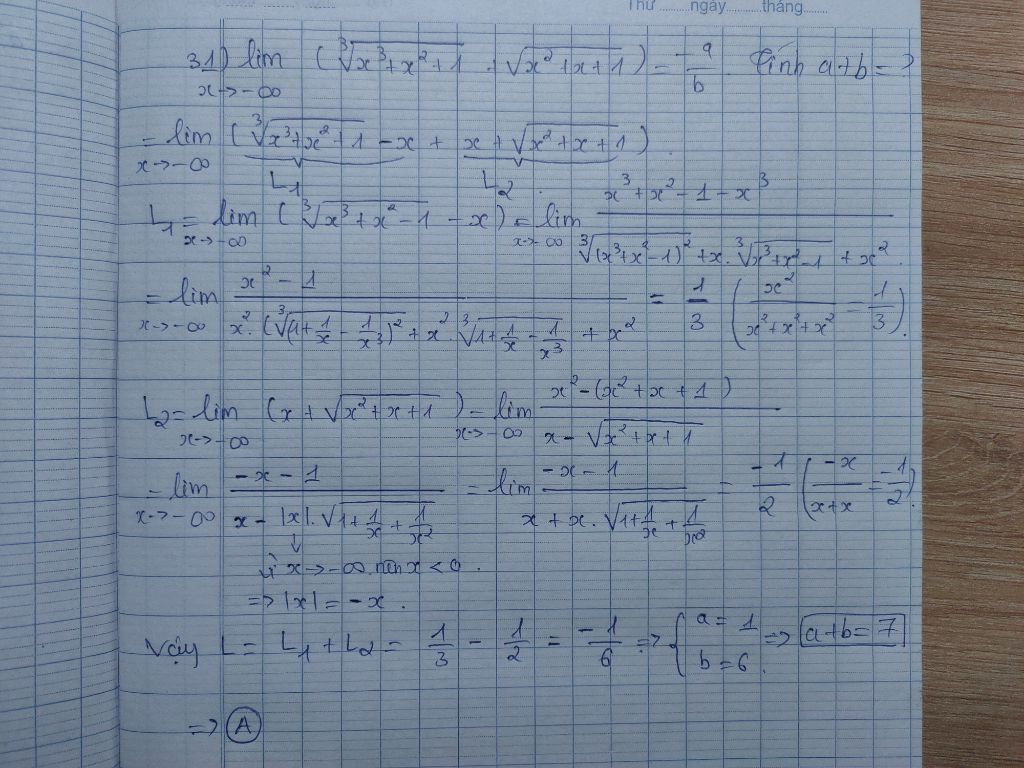 Thứ ........ngày..........tháng.......
31) lim x→-∞ (∛(x³+x²+1) + √(x²+x+1)) = -a/b. Tính a+b = ?
= lim x→-∞ (∛(x³+x²+1) - x + x + √(x²+x+1)).
L₁ L₂.
L₁ = lim x→-∞ (∛(x³+x²-1) - x) = lim x→-∞ (x³+x²-1-x³)/(∛(x³+x²-1)² + x.∛(x³+x²-1) + x²).
= lim x→-∞ (x²-1)/(x².(∛(1+1/x-1/x³)²) + x².∛(1+1/x-1/x³) + x²) = 1/3 (x²/(x²+x²+x²) = 1/3).
L₂ = lim x→-∞ (x + √(x²+x+1)) = lim x→-∞ (x²-(x²+x+1))/(x-√(x²+x+1))
= lim x→-∞ (-x-1)/(x-|x|.√(1+1/x+1/x²)) = lim (-x-1)/(x+x.√(1+1/x+1/x²)) = -1/2 (-x/(x+x) = -1/2).
↓
Vì x→-∞ nên x<0.
=> |x| = -x.
Vậy L = L₁ + L₂ = 1/3 - 1/2 = -1/6 => { a = 1 b = 6. => a+b = 7
=> A